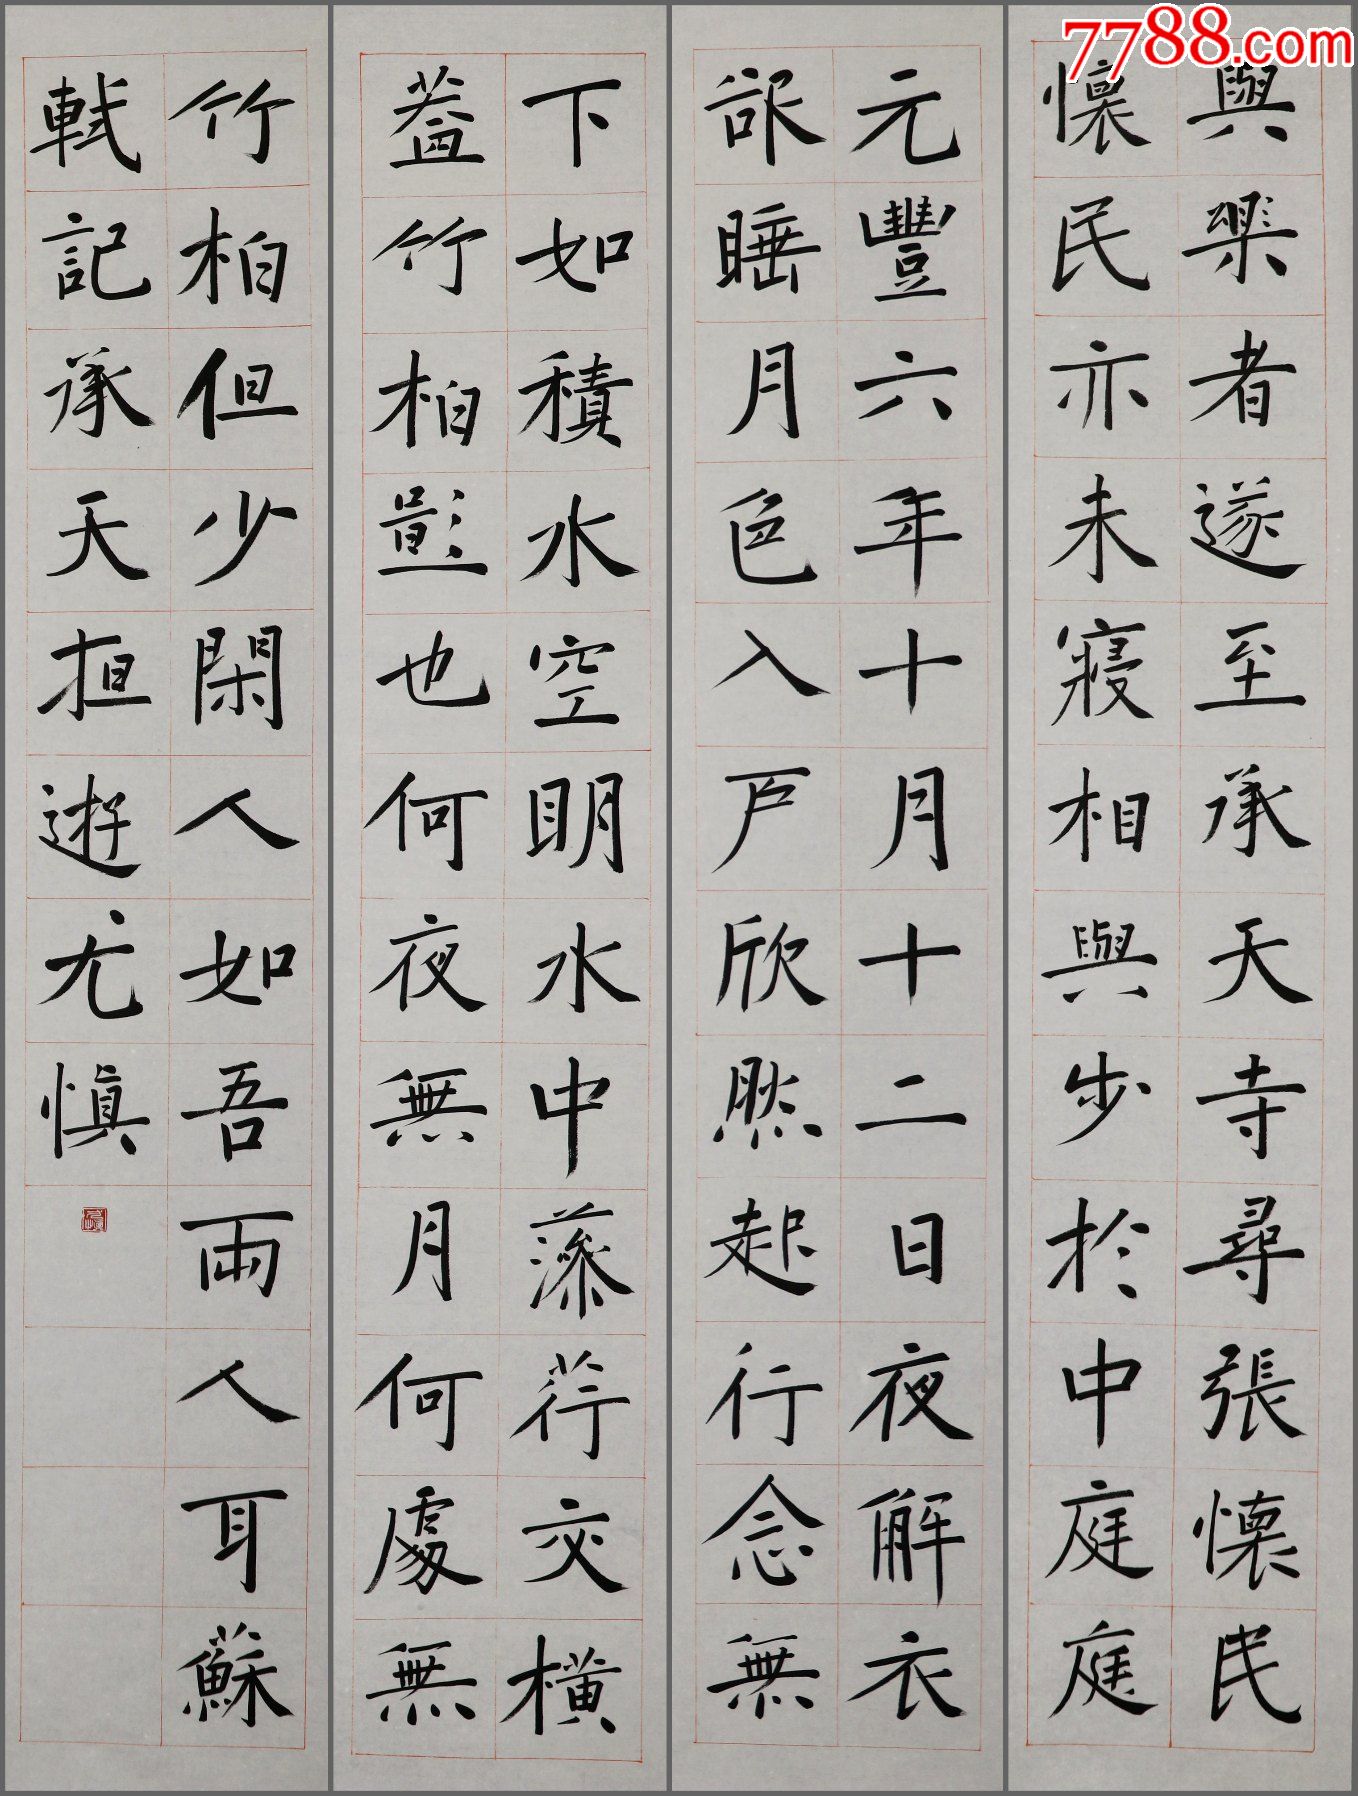 與樂者遂至承天寺尋張懷民
懷民亦未寢相與步於中庭庭
元豐六年十月十二日夜解衣
欲睡月色入戶欣然起行念無
下如積水空明水中藻荇交橫
蓋竹柏影也何夜無月何處無
竹柏但少閑人如吾兩人耳蘇
軾記承天遊尤慎
7788.com